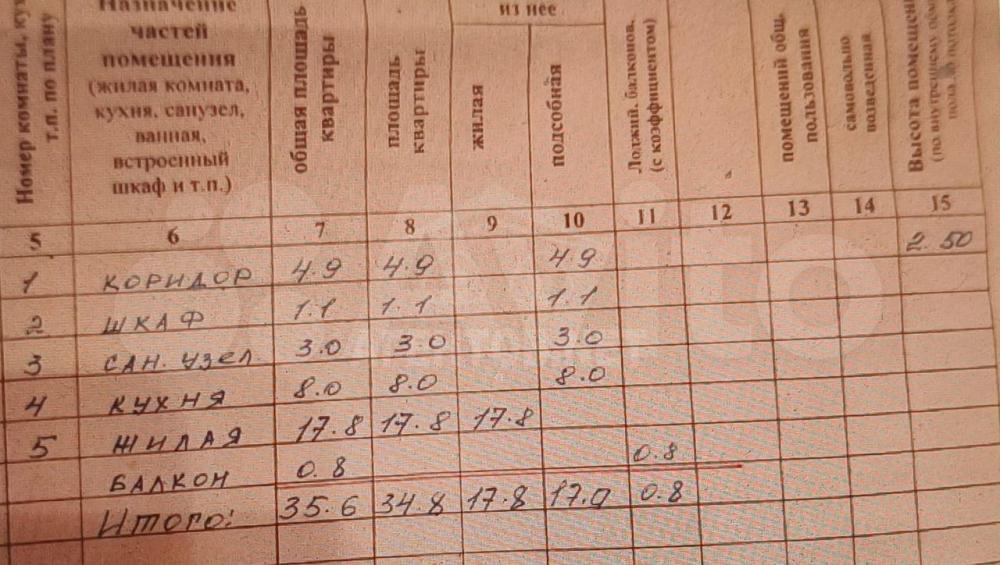 Номер комнаты, кух
т.п. по плану
Назначение
частей
помещения
(жилая комната,
кухня, санузел,
ванная,
встроенный
шкаф и т.п.)
общая площадь
квартиры
площадь
квартиры
из нее
жилая
подсобная
Лоджий, балконов,
(с коэффициентом)
помещений общ.
пользования
самовольно
возведенная
Высота помещени
(по внутреннему обме
5 6 7 8 9 10 11 12 13 14 15
1 КОРИДОР 4.9 4.9 4.9 2.50
2 ШКАФ 1.1 1.1 1.1
3 САН. УЗЕЛ 3.0 3.0 3.0
4 КУХНЯ 8.0 8.0 8.0
5 ЖИЛАЯ 17.8 17.8 17.8
БАЛКОН 0.8 0.8
Итого: 35.6 34.8 17.8 17.0 0.8
Avito